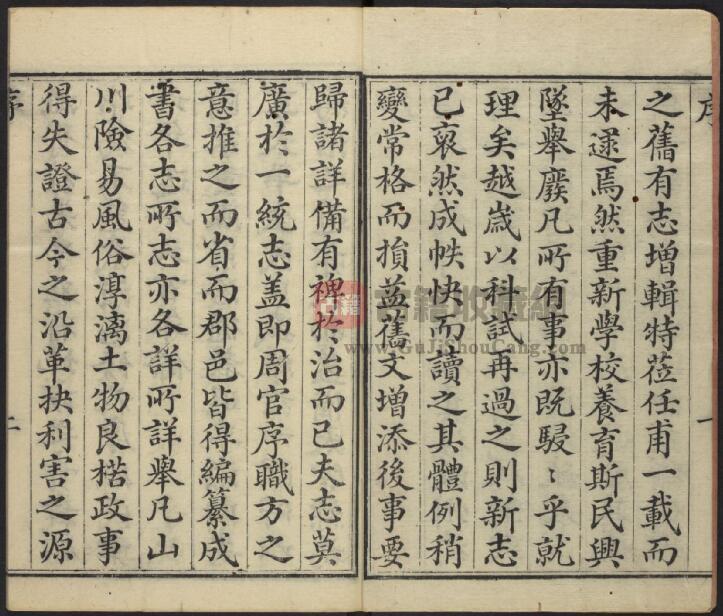 序
之舊有志增輯特蒞任甫一載而
未遂焉然重新學校養育斯民興
墜舉廢凡所有事亦既駸〻乎就
理矣越歲以科試再過之則新志
已裒然成帙快而讀之其體例稍
變常格而損益舊文增添後事要
一
歸諸詳備有裨於治而已夫志莫
廣於一統志盖即周官序職方之
意推之而省而郡邑皆得編纂成
書各志所志亦各詳所詳舉凡山
川險易風俗淳漓土物良楛政事
得失證古今之沿革抉利害之源
序
二
古籍
古籍收藏網
www.GuJiShouCang.com